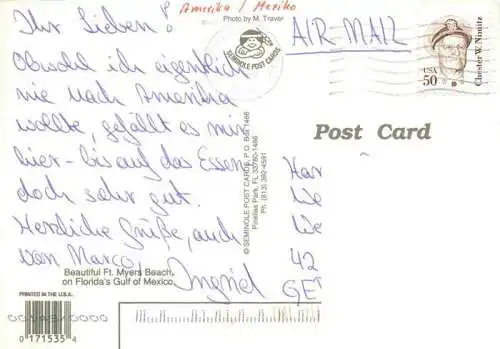 Amerika / Mexiko
Ihr Lieben!
Obwohl ich eigentlich
nie nach Amerika
wollte, gefällt es mir
hier - bis auf das Essen -
doch sehr gut.
Herzliche Grüße, auch
von Marco,
Ingrid
Beautiful Ft. Myers Beach
on Florida's Gulf of Mexico.
PRINTED IN THE U.S.A.
0 171535 4
Photo by M. Traver
SEMINOLE POST CARDS
© SEMINOLE POST CARDS, P.O. BOX 1466
Pinellas Park, FL 33780-1466
Ph. (813) 392-4591
AIR-MAIL
USA
50
Chester W. Nimitz
Post Card
Har
We
We
42
GE